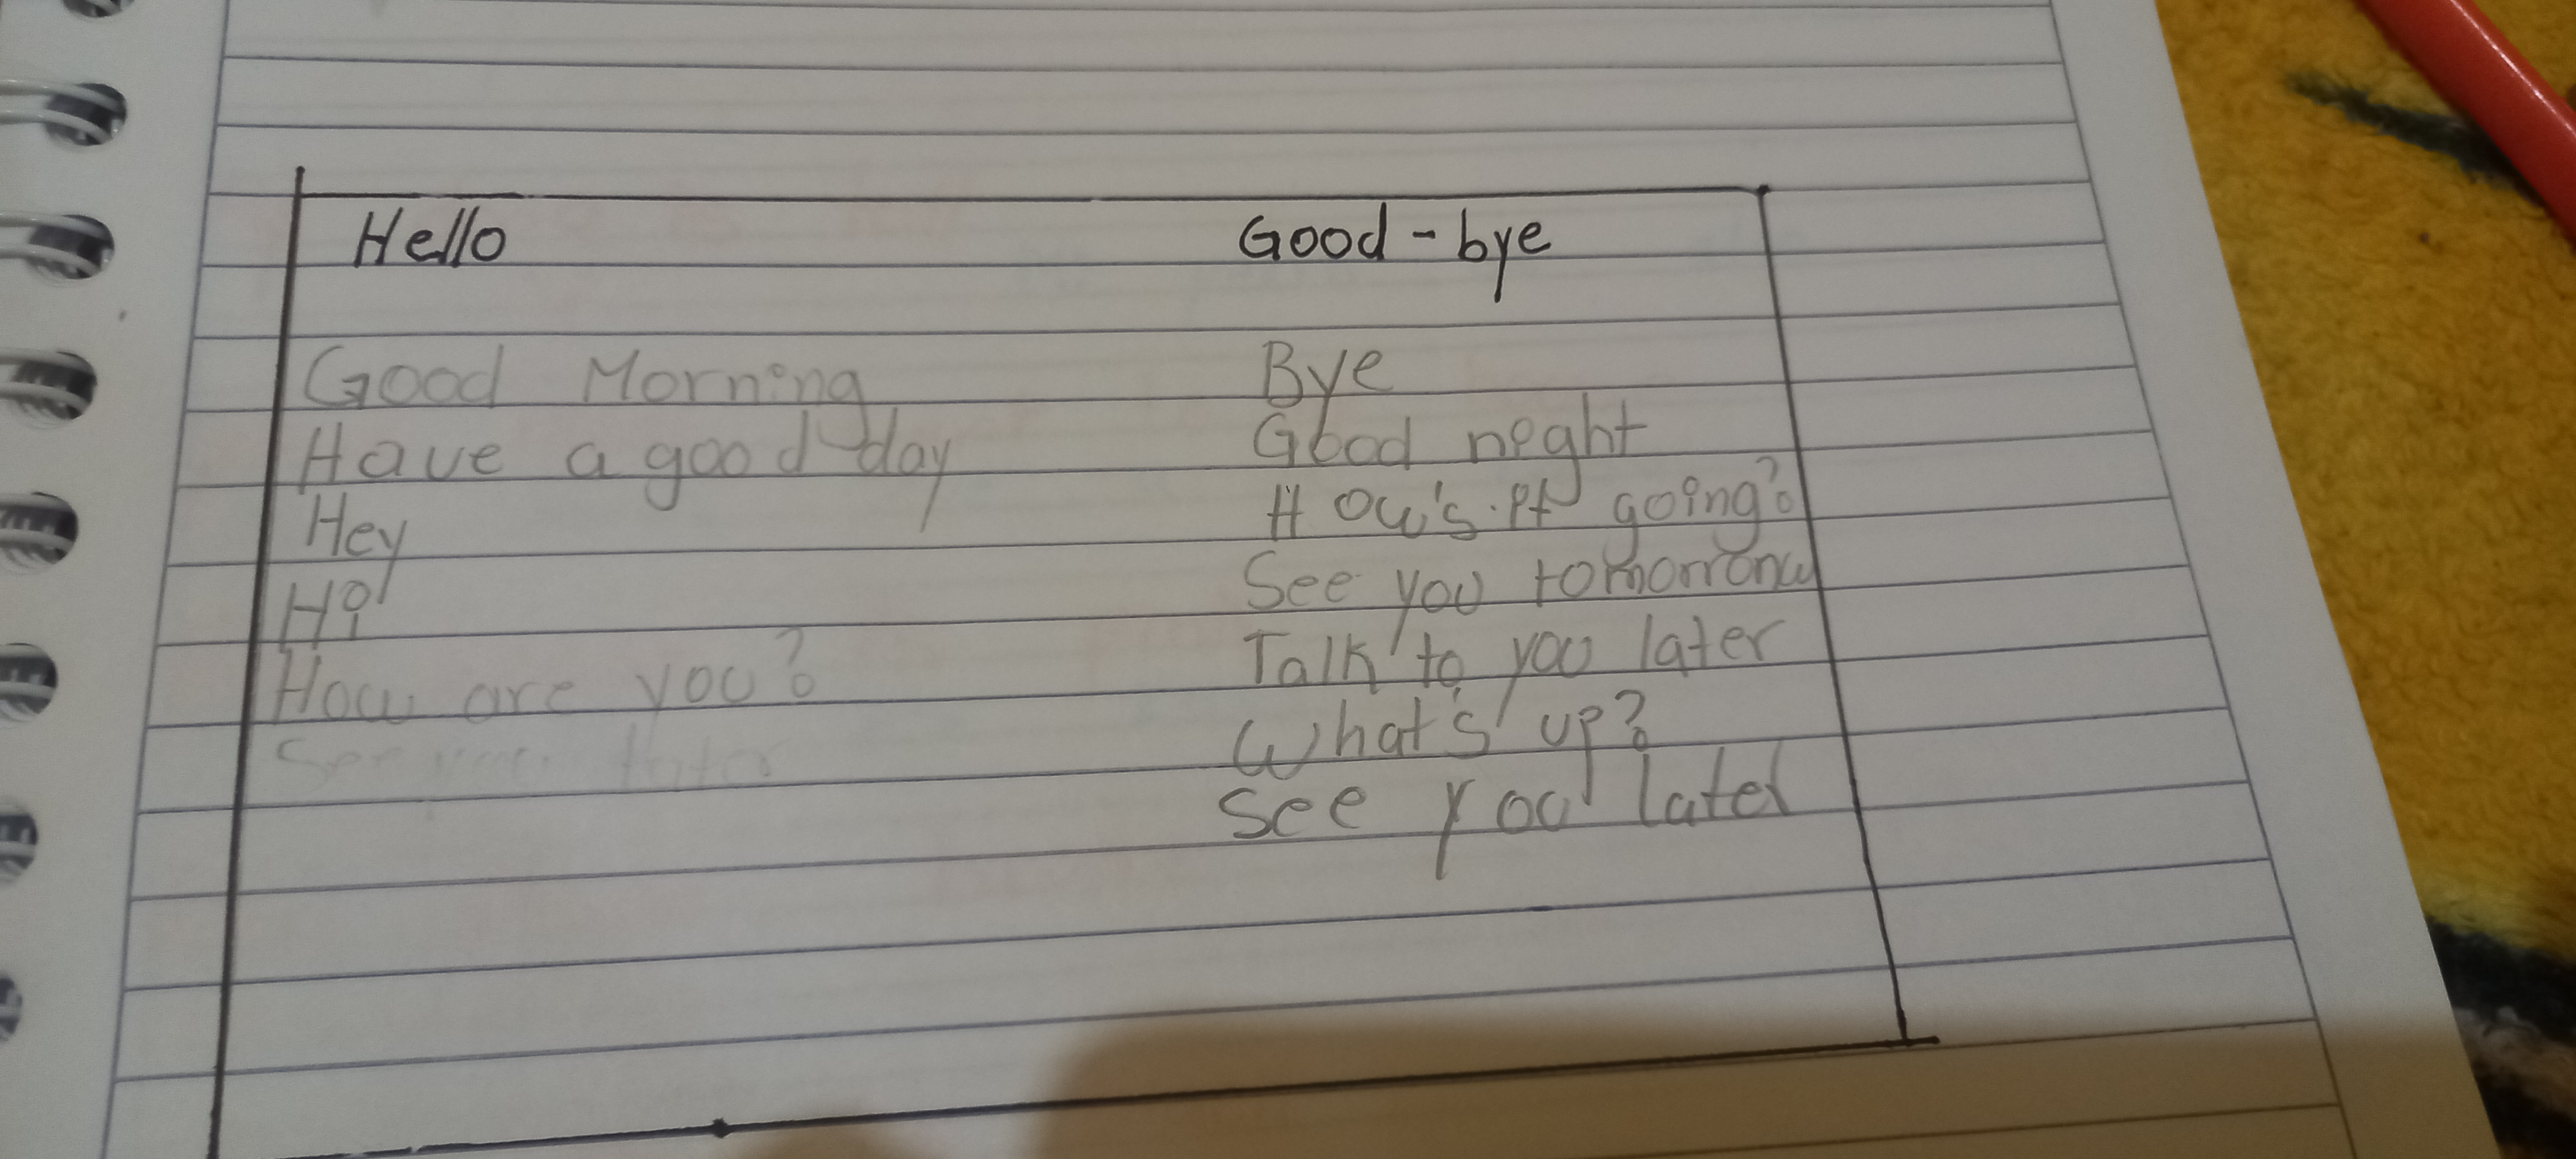 Hello Good-bye
Good Morning Bye
Have a good day Good night
Hey How's it going?
Hi See you tomorrow
How are you? Talk to you later
See you later What's up?
See you later